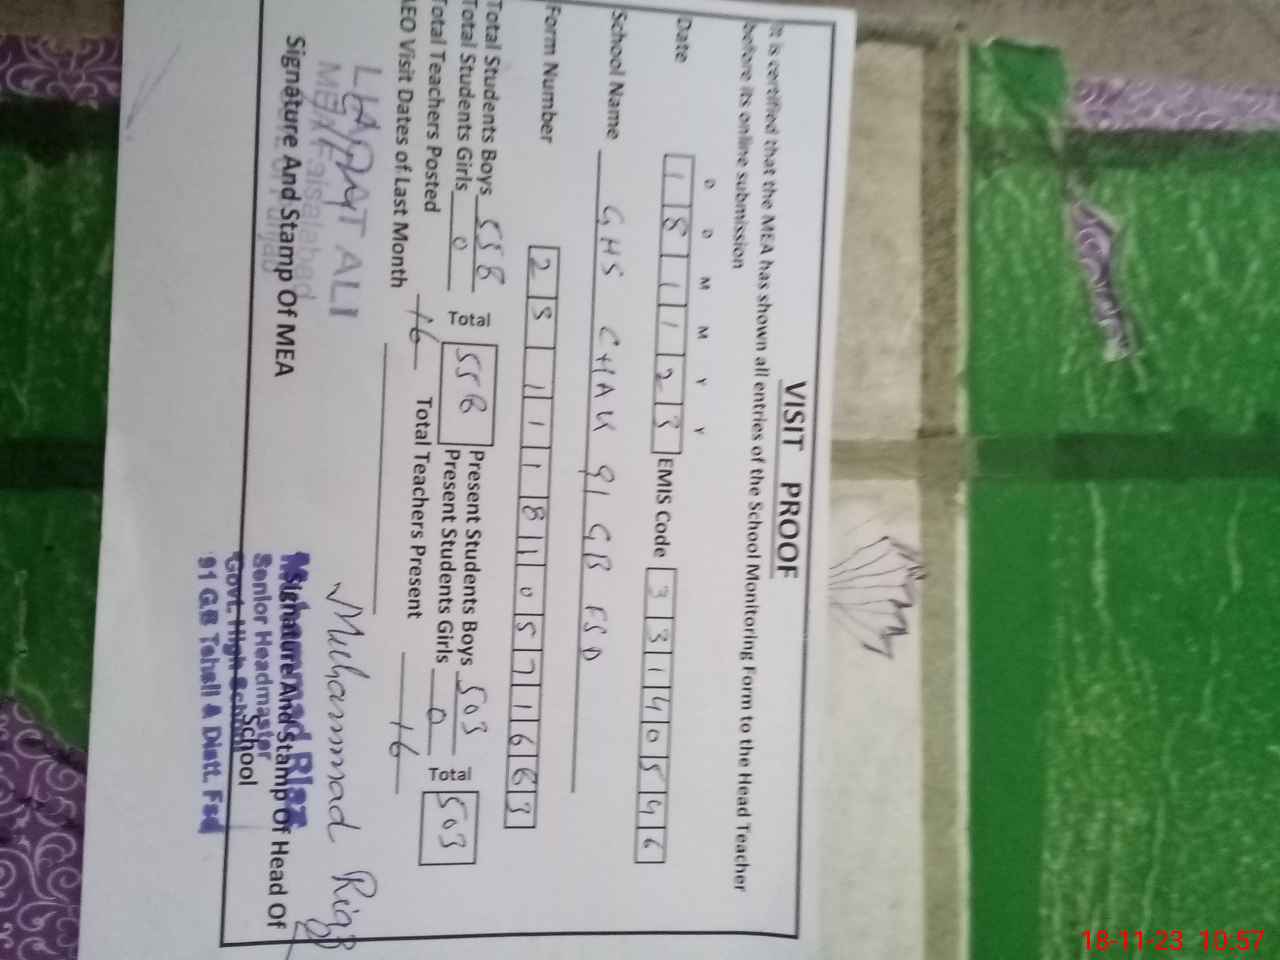 VISIT PROOF
It is certified that the MEA has shown all entries of the School Monitoring Form to the Head Teacher
before its online submission
D D M M Y Y
Date 1 8 1 1 2 3 EMIS Code 3 3 1 4 0 5 4 6
School Name GHS CHAK 91 GB FSD
Form Number 2 3 1 1 1 8 1 0 5 7 1 6 6 3
Total Students Boys 558 Total 558 Present Students Boys 503 Total 503
Total Students Girls 0 Present Students Girls 0
Total Teachers Posted 16 Total Teachers Present 16
AEO Visit Dates of Last Month
LIAQAT ALI
MEA Faisalabad
Signature And Stamp Of MEA
Muhammad Riaz
Muhammad Riaz
Signature And Stamp Of Head Of
School
Senior Headmaster
Govt. High School
91 G.B Tehsil & Distt. Fsd
18-11-23 10:57